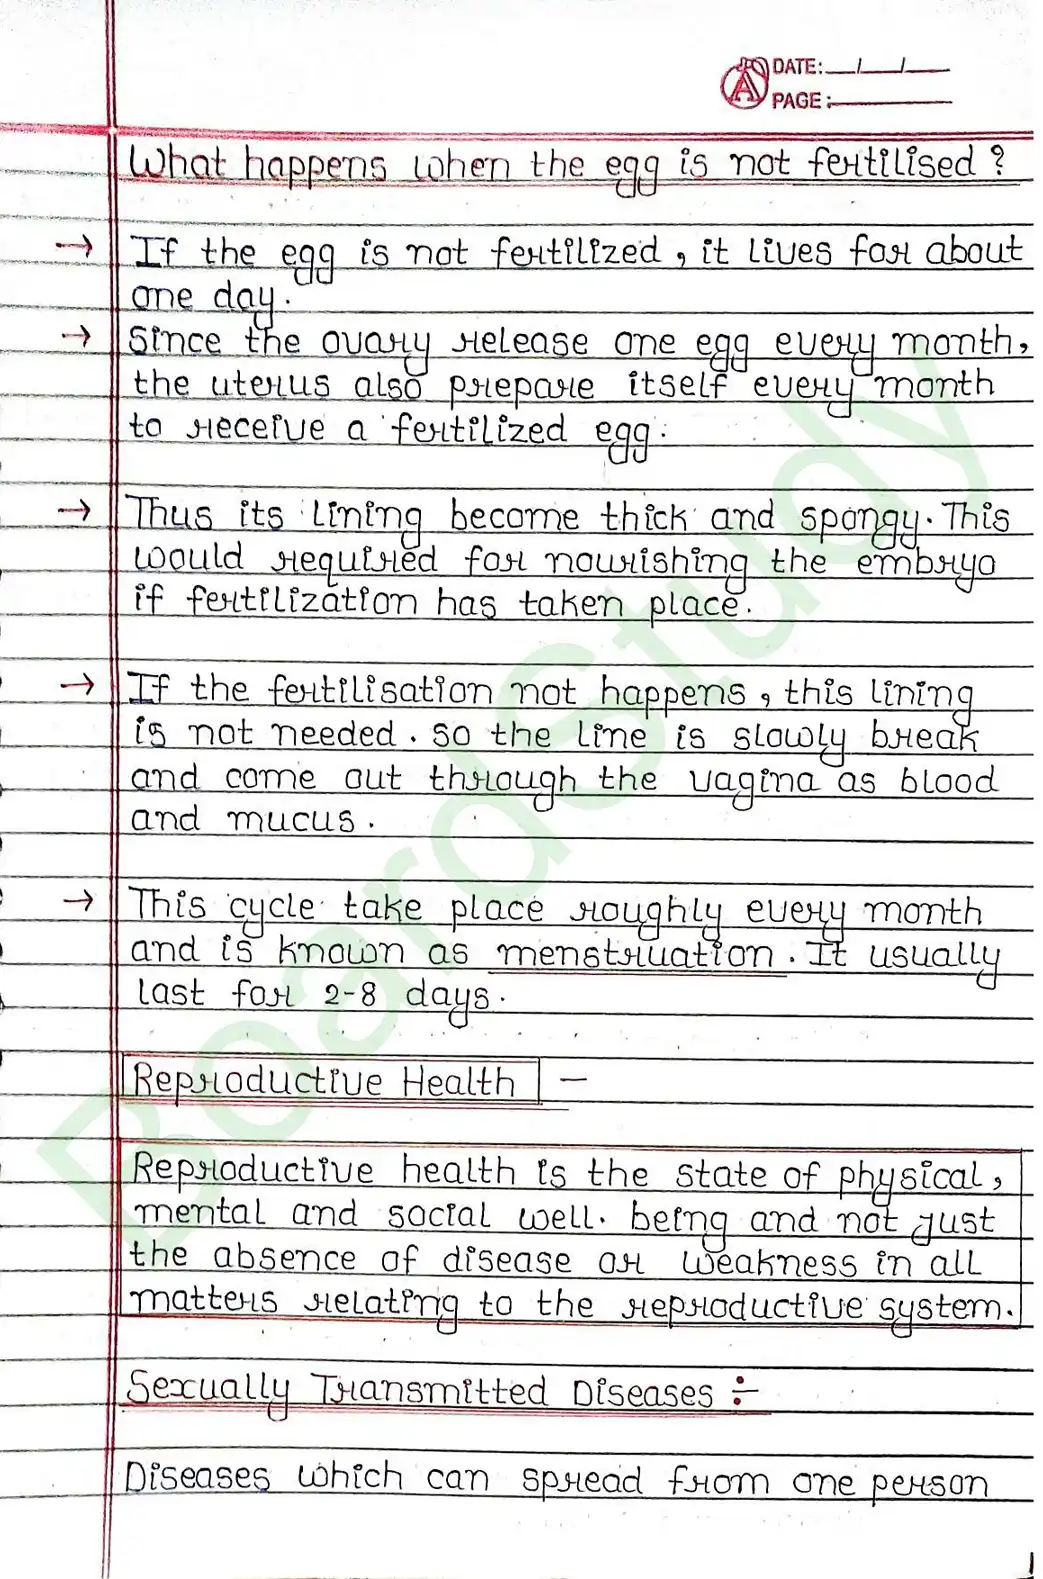 DATE: __/__/__
PAGE:
What happens when the egg is not fertilised ?
→ If the egg is not fertilized, it lives for about
one day.
→ Since the ovary release one egg every month,
the uterus also prepare itself every month
to receive a fertilized egg.
→ Thus its lining become thick and spongy. This
would required for nourishing the embryo
if fertilization has taken place.
→ If the fertilisation not happens, this lining
is not needed. So the line is slowly break
and come out through the vagina as blood
and mucus.
→ This cycle take place roughly every month
and is known as menstruation. It usually
last for 2-8 days.
Reproductive Health –
Reproductive health is the state of physical,
mental and social well. being and not just
the absence of disease or weakness in all
matters relating to the reproductive system.
Sexually Transmitted Diseases ÷
Diseases which can spread from one person
BoardStudy